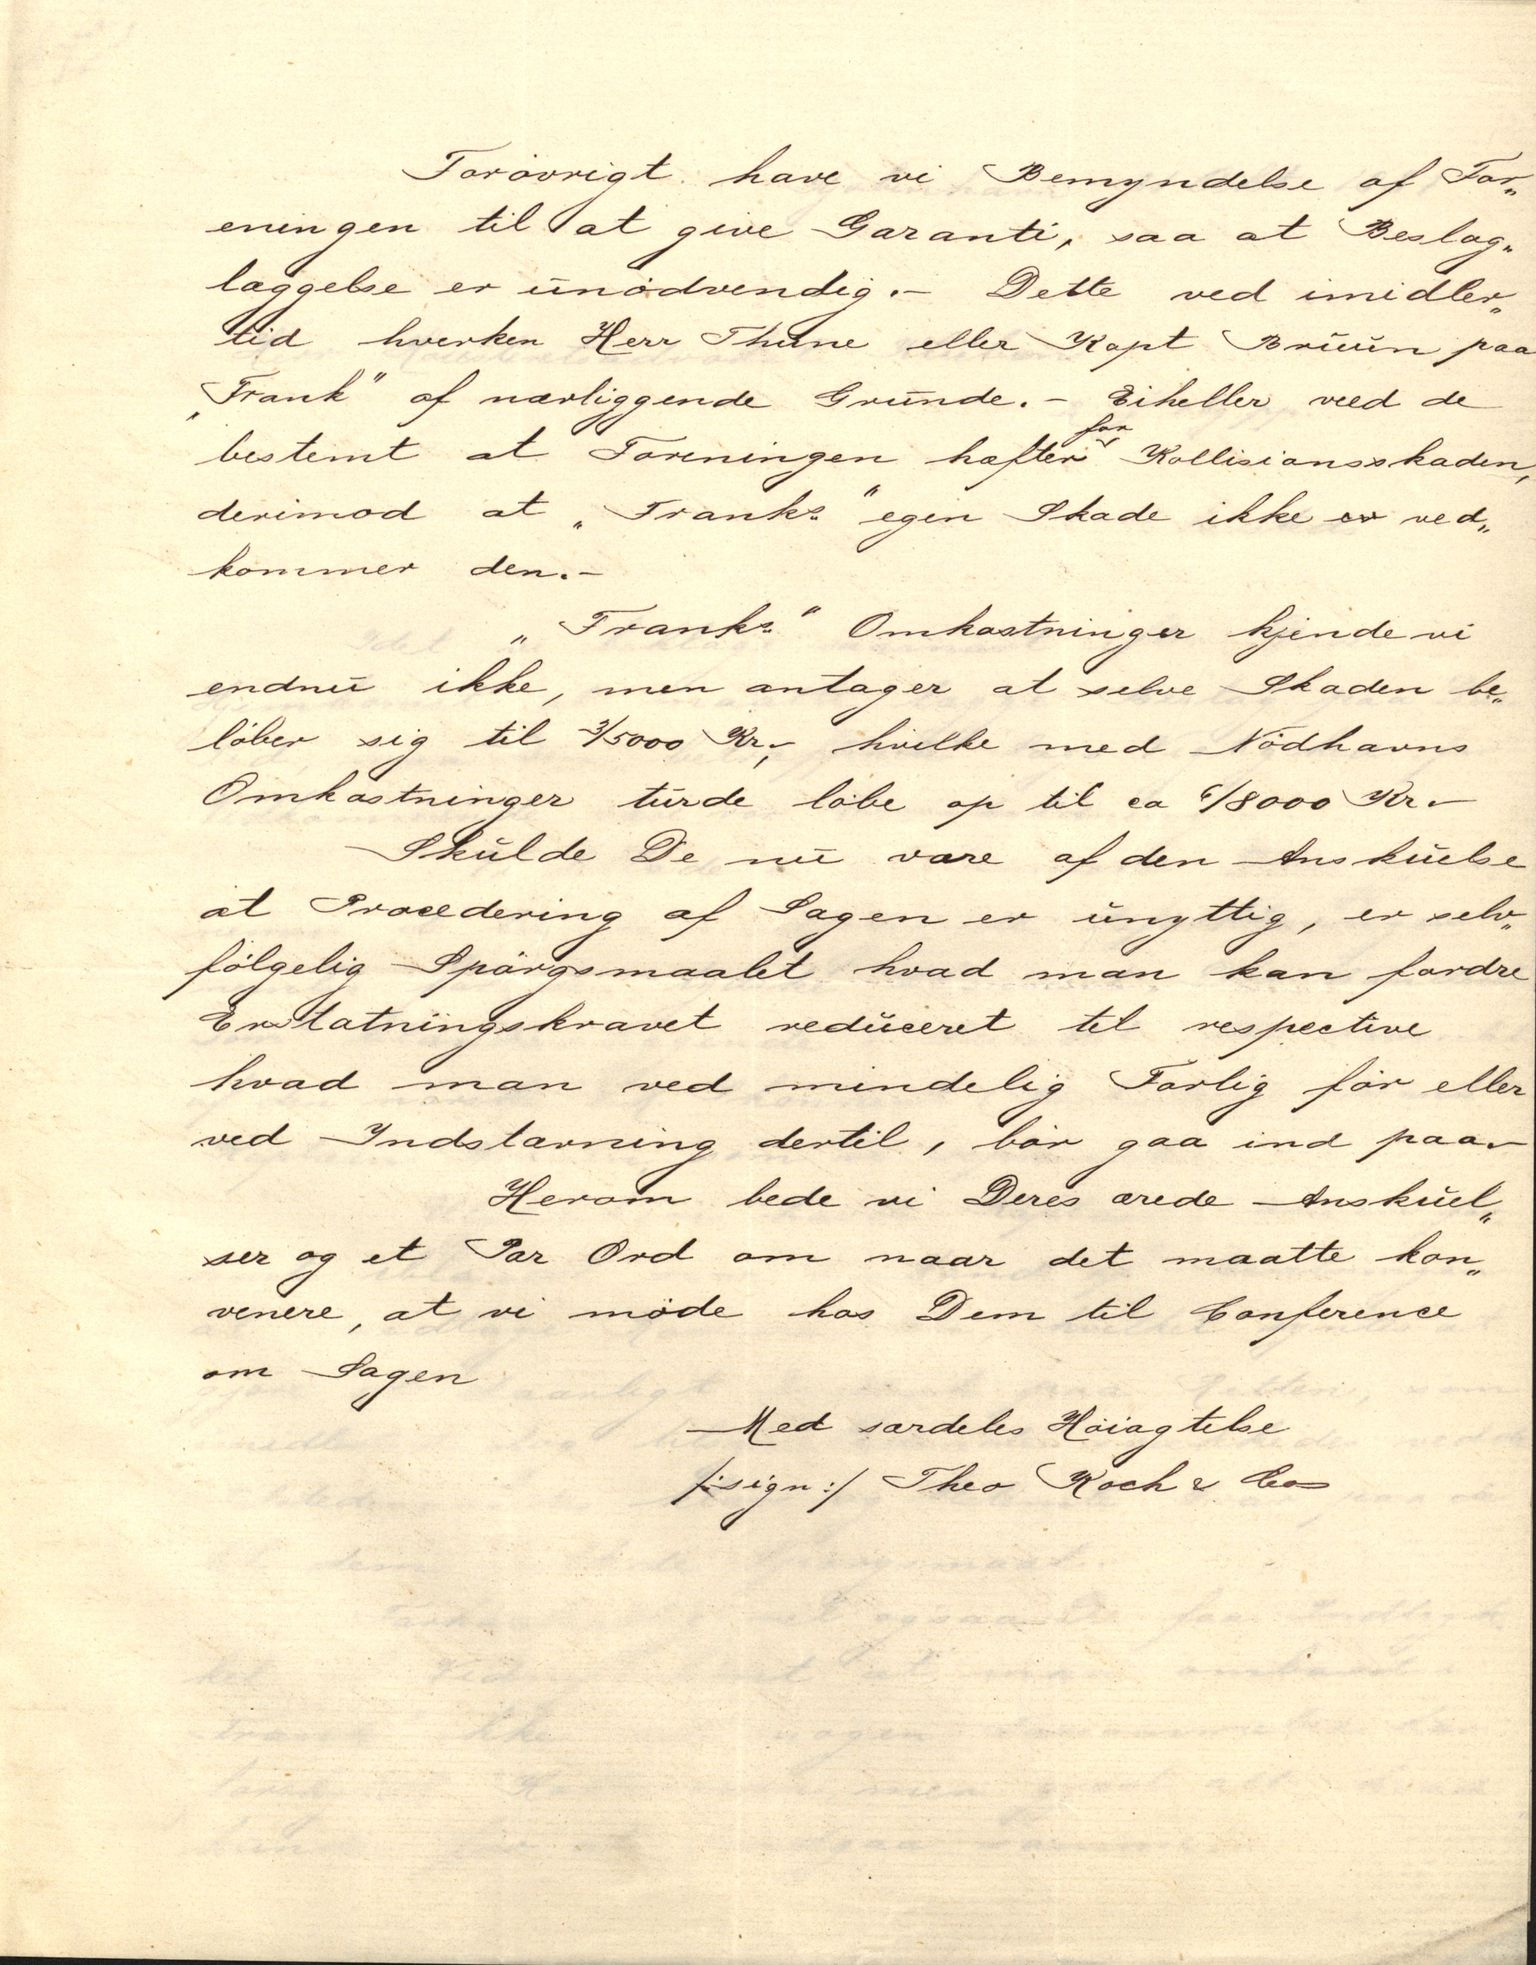 Forøvrigt have vi Bemyndelse af For„
eningen til at give Garanti, saa at Beslag„
læggelse er unødvendig.— Dette ved imidler„
tid hverken Herr Thune eller Kapt Bruun paa
„Frank" af nærliggende Grunde.— Eiheller veed de
bestemt at Foreningen hæfter for Kollisionsskaden,
derimod at „Franks" egen Skade ikke er ved„
kommer den.—
„Franks" Omkostninger kjende vi
endnu ikke, men antager at selve Skaden be„
løber sig til 3/5000 Kr,— hvilke med Nødhavns
Omkostninger turde løbe op til ca 6/8000 Kr.—
Skulde De nu være af den Anskuelse
at Procedering af Sagen er unyttig, er selv„
følgelig Spørgsmaalet hvad man kan fordre
Erstatningskravet reduceret til respective
hvad man ved mindelig Forlig før eller
ved Indstævning dertil, bør gaa ind paa.—
Herom bede vi Deres ærede Anskuel„
ser og et Par Ord om naar det maatte kon„
venere, at vi møde hos Dem til Conference
om Sagen
Med særdeles Høiagtelse
/:sign:/ Theo Koch & Co